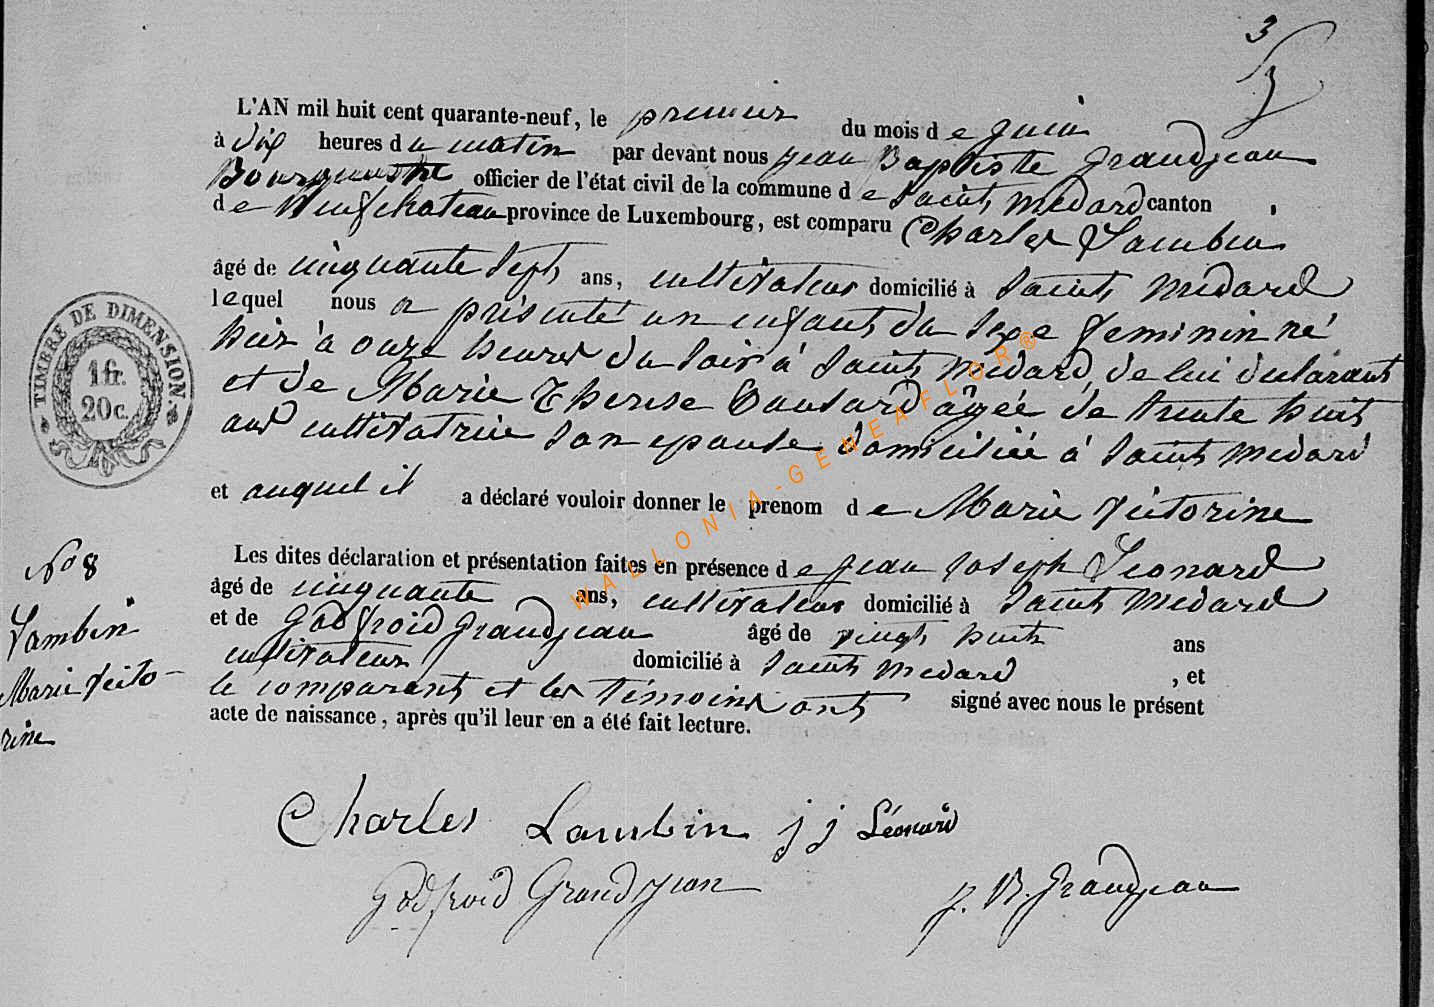 3
3
L'AN mil huit cent quarante-neuf, le premier du mois de juin
à dix heures du matin par devant nous jean Baptiste Grandjean
Bourgmestre officier de l'état civil de la commune de Saint Médard canton
de Neufchateau province de Luxembourg, est comparu Charles Lambin
âgé de cinquante sept ans, cultivateur domicilié à Saint Médard
lequel nous a présenté un enfant du sexe feminin né
hier à onze heures du soir à Saint Médard, de lui déclarant
et de Marie Therese agée de trente huit
ans cultivatrice son epouse domiciliée à Saint Médard
et auquel il a déclaré vouloir donner le prenom de Marie Victorine
Les dites déclaration et présentation faites en présence de jean joseph Léonard
âgé de cinquante ans, cultivateur domicilié à Saint Médard
et de Godfroid Grandjean âgé de vingt huit ans
cultivateur domicilié à Saint Médard , et
le comparant et les témoins ont signé avec nous le présent
acte de naissance, après qu'il leur en a été fait lecture.
TIMBRE DE DIMENSION.
1 fr.
20 c.
No 8
Lambin
Marie Victo-
rine
Charles Lambin j j Léonard
Godfroid Grandjean J. B. Grandjean
WALLONIA-GENEAFLOR®